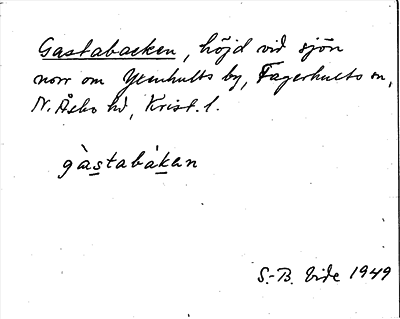 Gastabacken, höjd vid sjön
norr om Yxenhults by, Fagerhults sn,
N. Åsbo hd, Krist. l.
gàstabàkan
S.-B. Vide 1949